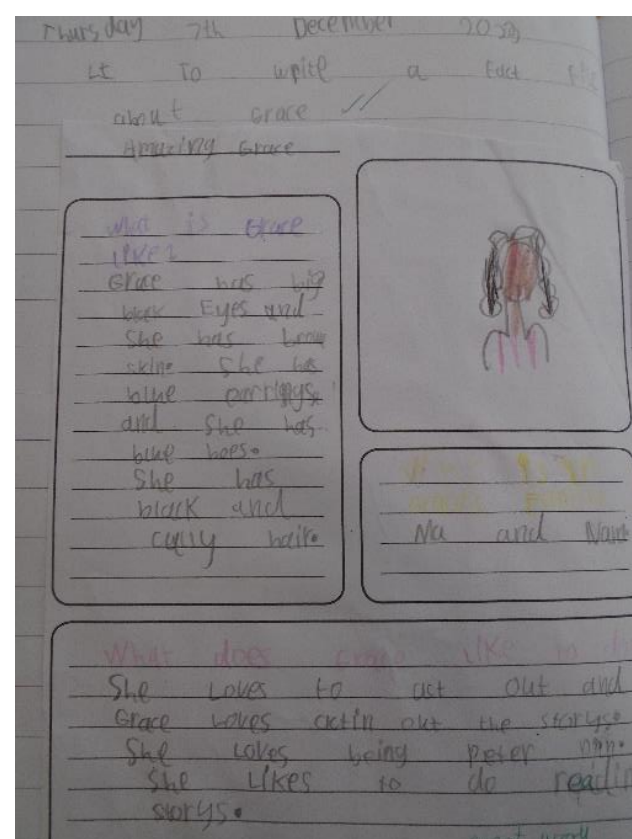 Thursday 7th December 2023
LI To write a Fact file
about Grace
Amazing Grace
What is Grace
like?
Grace has big
black Eyes and
She has brown
skin. She has
blue earringys.
and She has
blue boes.
She has
black and
cully hair.
Na and Nan
What does Grace like to do
She Loves to act out and
Grace Loves actin out the storys.
She Loves being Peter
She Likes to do readin
storys.